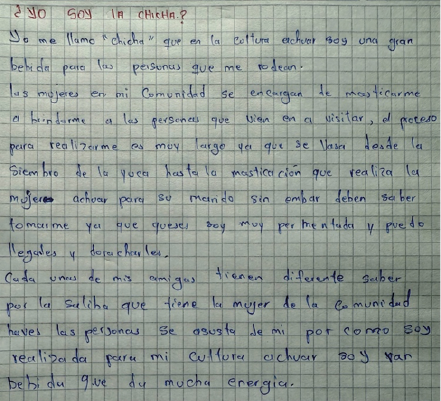 ¿YO SOY LA CHICHA?
Yo me llamo "chicha" que en la coltura achuar soy una gran
bebida para las personas que me rodean.
las mujeres en mi Comunidad se encargan de masticarme
a brindarme a las personas que vien en a visitar, el proceso
para realizarme es muy largo ya que se vasa desde la
siembro de la yuca hasta la masticación que realiza la
mujer achuar para su marido sin embar deben saber
tomarme ya que queses soy muy permentada y puedo
llegarles y dorracharles.
Cada unas de mis amigas tienen diferente saber
por la saliba que tiene la mujer de la comunidad
haves las personas se asusta de mi por como soy
realizada para mi cultura achuar soy ran
bebida que da mucha energia.